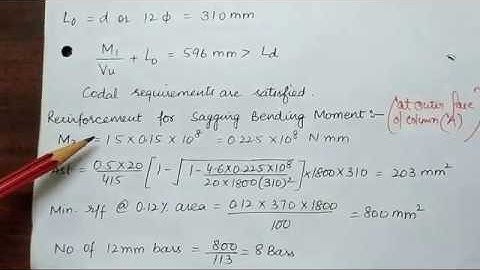 L₀ = d or 12ϕ = 310 mm
M₁/Vu + L₀ = 596 mm > Ld
Codal requirements are satisfied.
Reinforcement for Sagging Bending Moment:- (at outer face of column 'A')
M₂ = 1.5 × 0.15 × 10⁸ = 0.225 × 10⁸ N mm
Ast = 0.5×20/415 [1 - √(1 - 4.6×0.225×10⁸/20×1800(310)²)] × 1800 × 310 = 203 mm²
Min. r/f @ 0.12% area = 0.12 × 370 × 1800/100 = 800 mm²
No of 12mm bars = 800/113 = 8 Bars